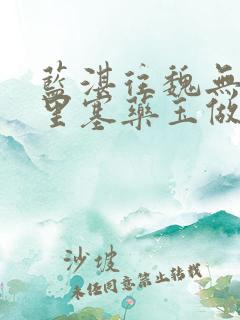 藍湛往魏無
里塞藥玉做
沙坡
未經同意禁止轉載